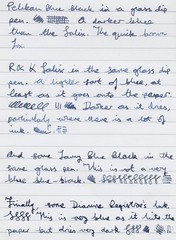 Pelikan Blue Black in a glass dip
pen. A darker blue
than the Salix. The quick brown
fox
R & K Salix in the same glass dip
pen. A lighter sort of blue, at
least as it goes onto the paper.
!!! Darker as it dries,
particularly where there is a lot of
ink.
And some Lamy Blue Black in the
same glass pen. This is not a very
blue blue-black.
Finally some Diamine Registrar's Ink
This is very blue as it hits the
paper but dries very dark